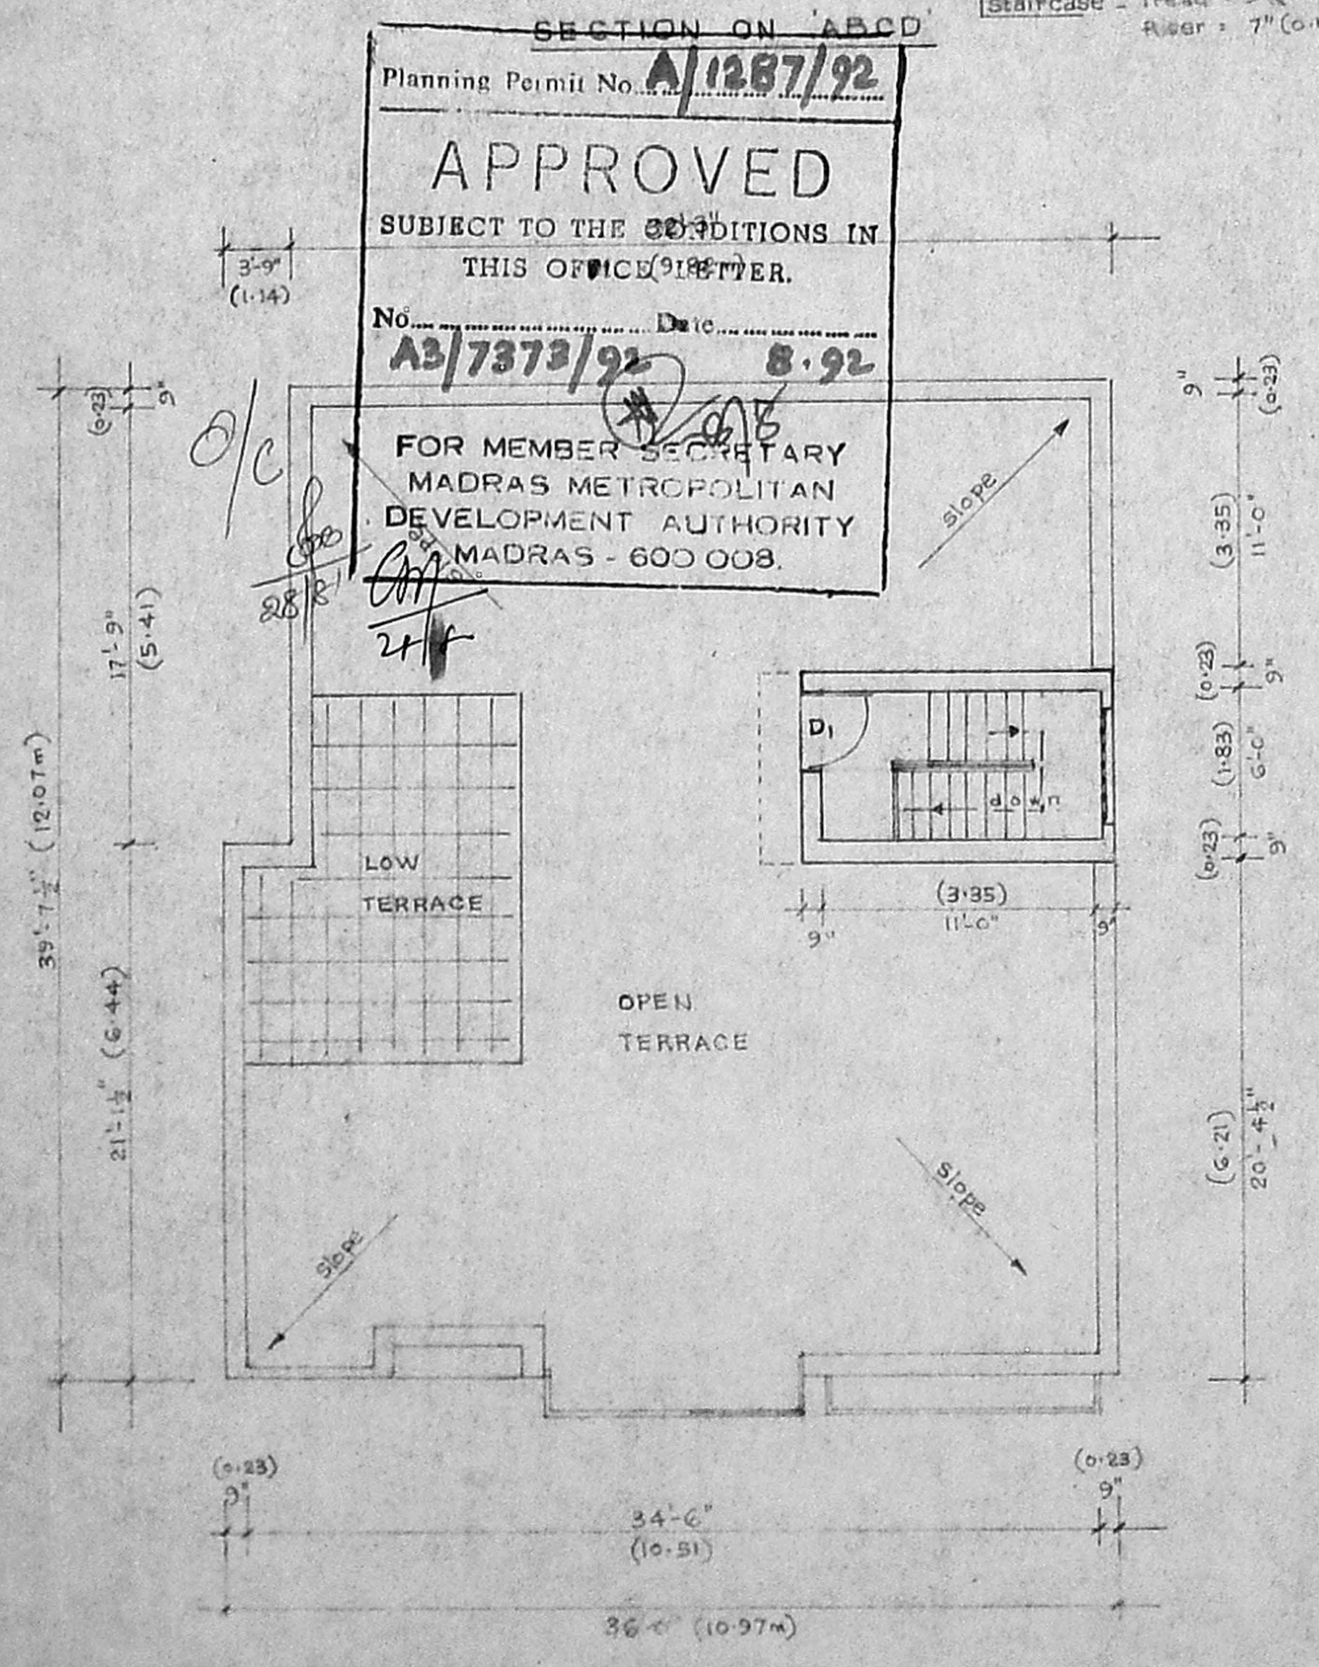 SECTION ON 'ABCD'
Staircase -
Riser : 7"
Planning Permit No. A/1287/92
APPROVED
SUBJECT TO THE CONDITIONS IN
THIS OFFICE LETTER.
32'-3"
No. Date
A3/7373/92 8.92
FOR MEMBER SECRETARY
MADRAS METROPOLITAN
DEVELOPMENT AUTHORITY
MADRAS - 600 008.
3'-9"
(1.14)
O/C
28/8
(0.23)
9"
17'-9"
(5.41)
39'-7½" (12.07m)
21'-1½" (6.44)
9"
(0.23)
(3.35)
11'-0"
(0.23)
9"
(1.83)
6'-0"
(0.23)
9"
(6.21)
20'-4½"
slope
D1
down
LOW
TERRACE
(3.35)
9" 11'-0" 9"
OPEN
TERRACE
Slope
Slope
(0.23)
9"
(0.23)
9"
34'-6"
(10.51)
(10.97m)